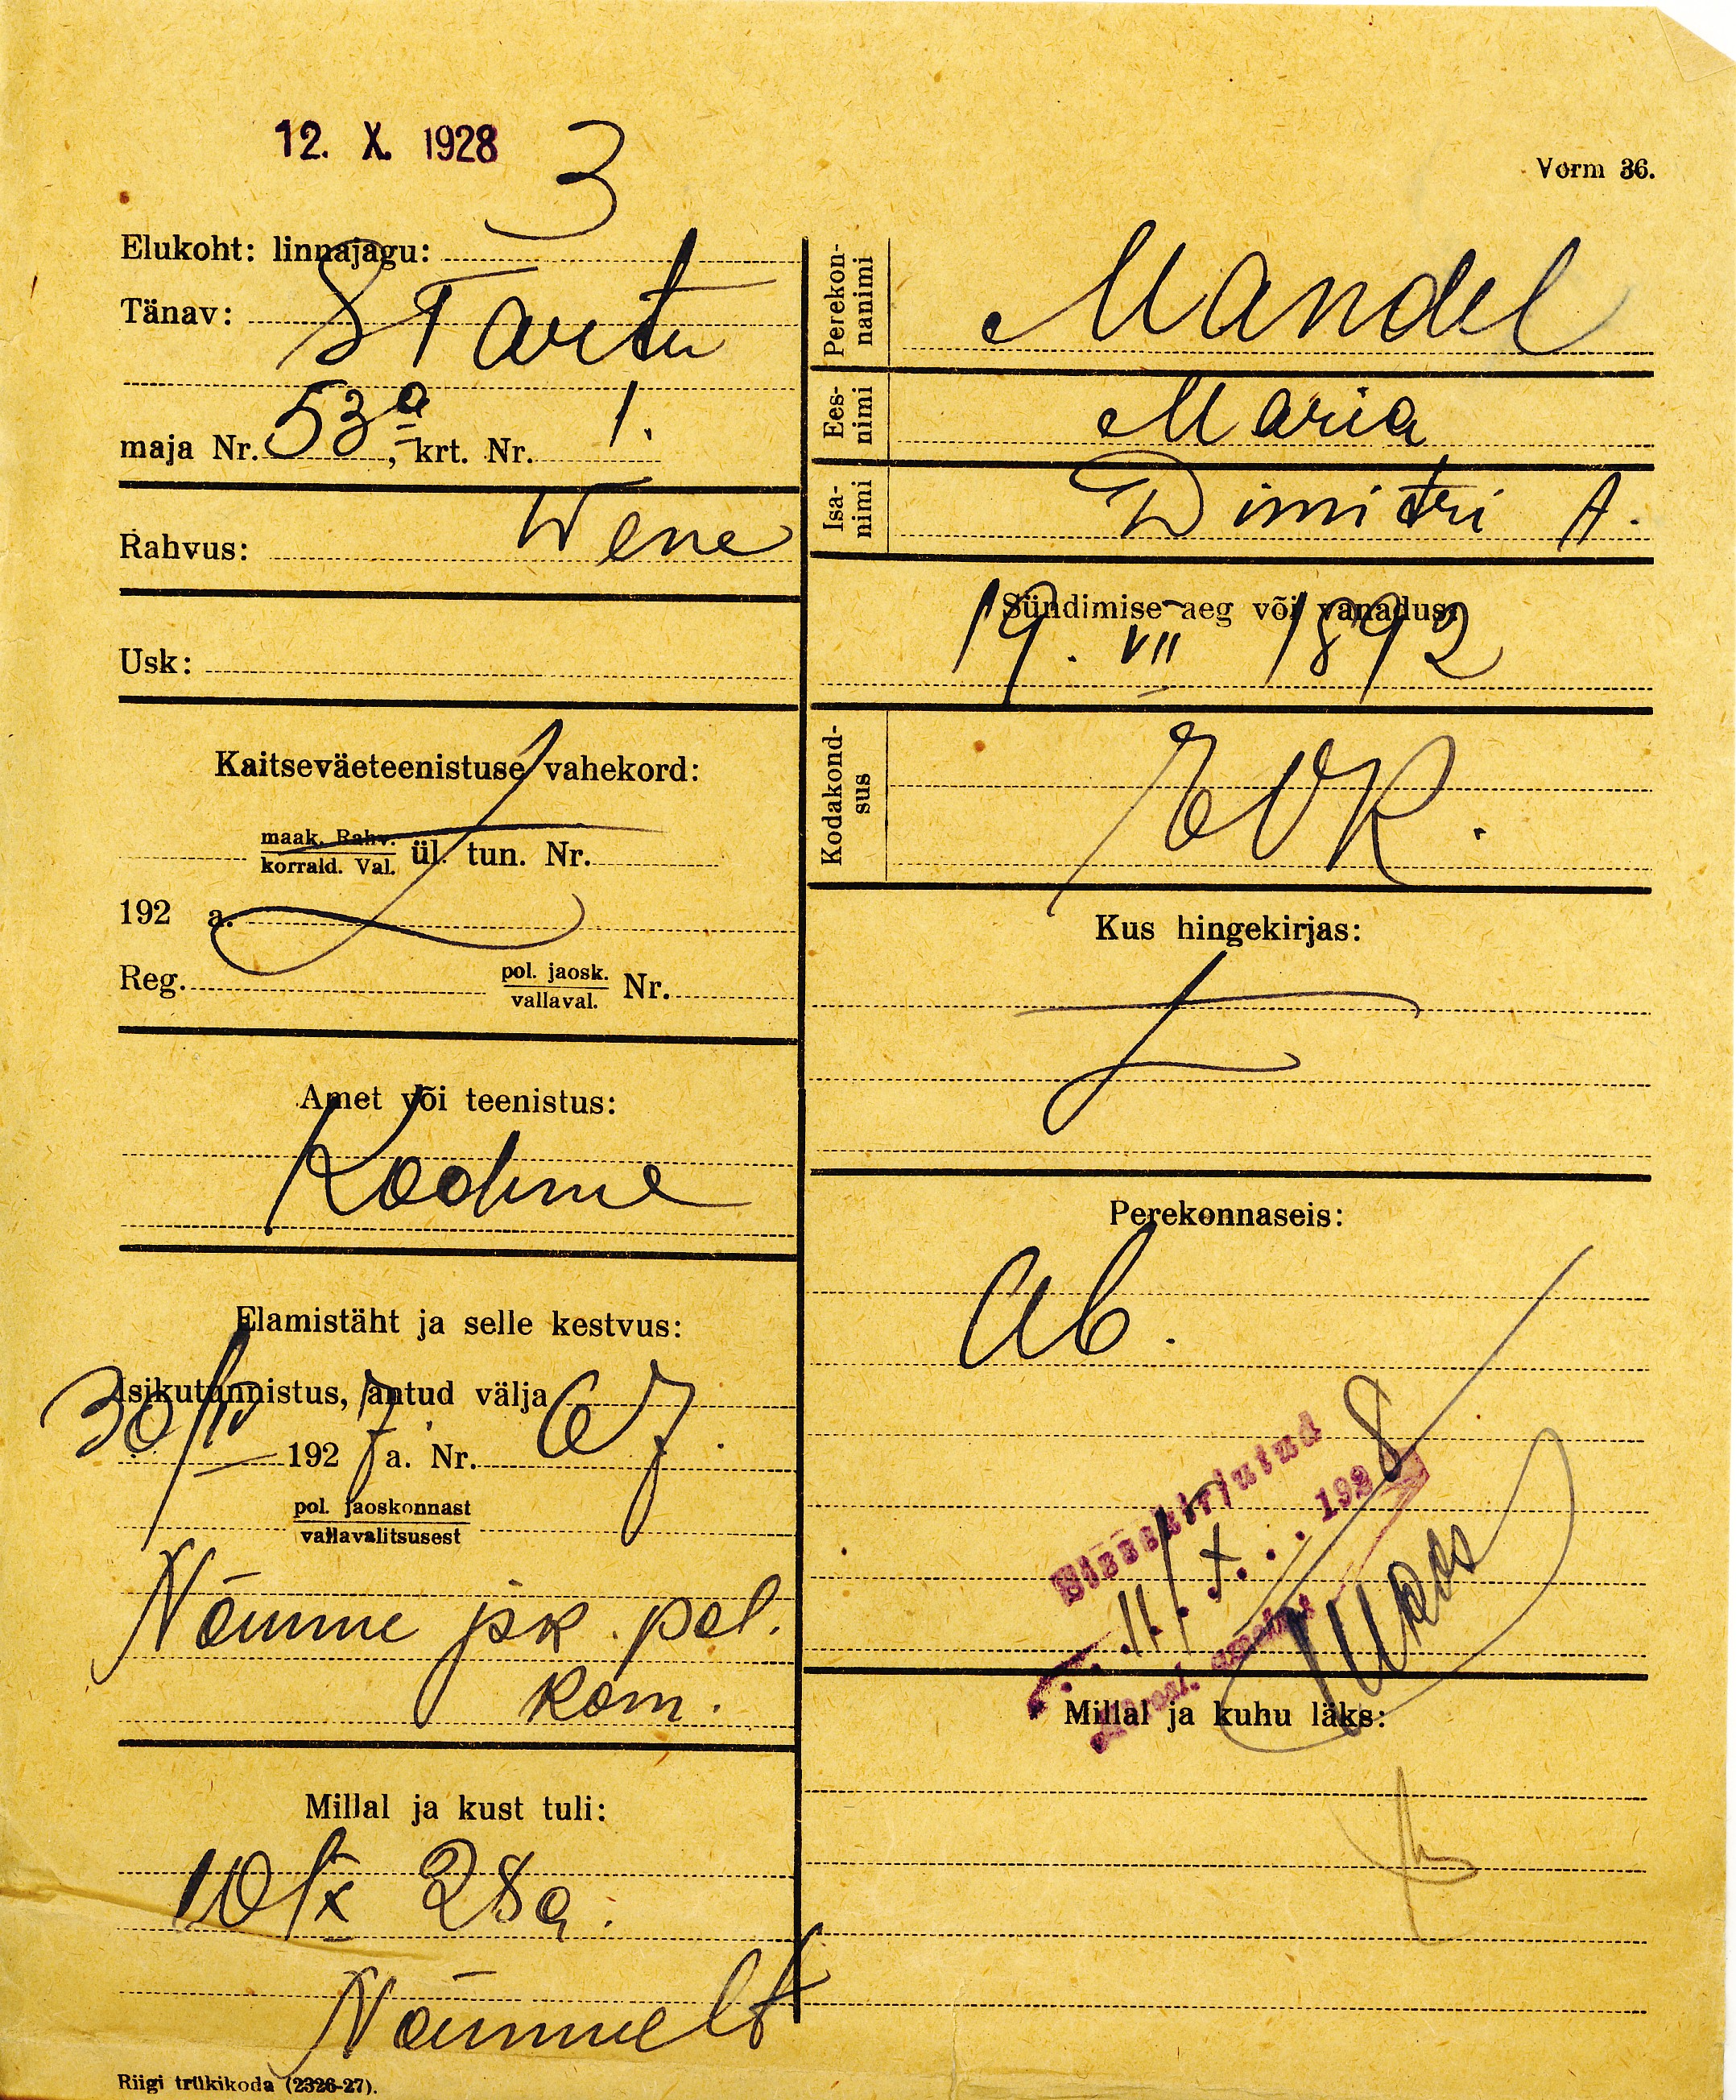 12. X. 1928
3
Vorm 36.
Elukoht: linnajagu:
Tänav: S Tartu
maja Nr. 53a, krt. Nr. 1.
Rahvus: Wene
Usk:
Kaitseväeteenistuse vahekord:
maak. Rahv.
korrald. Val. ül. tun. Nr.
192 a.
Reg. pol. jaosk. Nr.
vallaval.
Amet või teenistus:
Kodune
Elamistäht ja selle kestvus:
Isikutunnistus, antud välja
30/IV 1927 a. Nr. 67.
pol. jaoskonnast
vallavalitsusest
Nõmme jsk. pol.
kom.
Millal ja kust tuli:
10/X 28 a.
Nõmmelt
Riigi trükikoda (2326-27).
Perekonnanimi Mandel
Eesnimi Maria
Isanimi Dimitri A.
Sündimise aeg või vanadus:
19. VII 1892
Kodakondsus EVK.
Kus hingekirjas:
Perekonnaseis:
Ab.
Sissekirjutud
11/X. 1928
Millal ja kuhu läks: